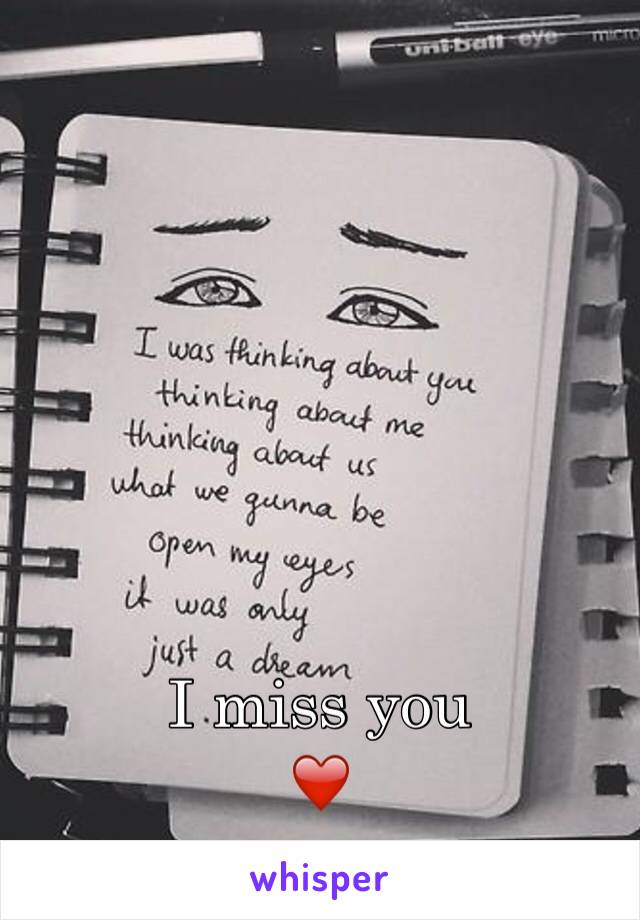 uni-ball eye micro
I was thinking about you
thinking about me
thinking about us
what we gunna be
open my eyes
it was only
just a dream
I miss you
❤️
whisper